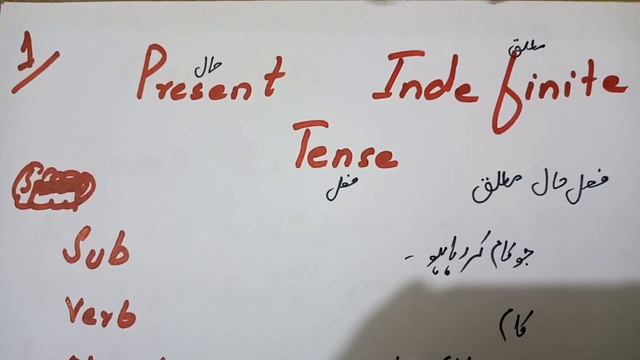 1/
حال مطلق
Present Indefinite
Tense
فعل فعل حال مطلق
Sub جو کام کر رہا ہو۔
Verb کام